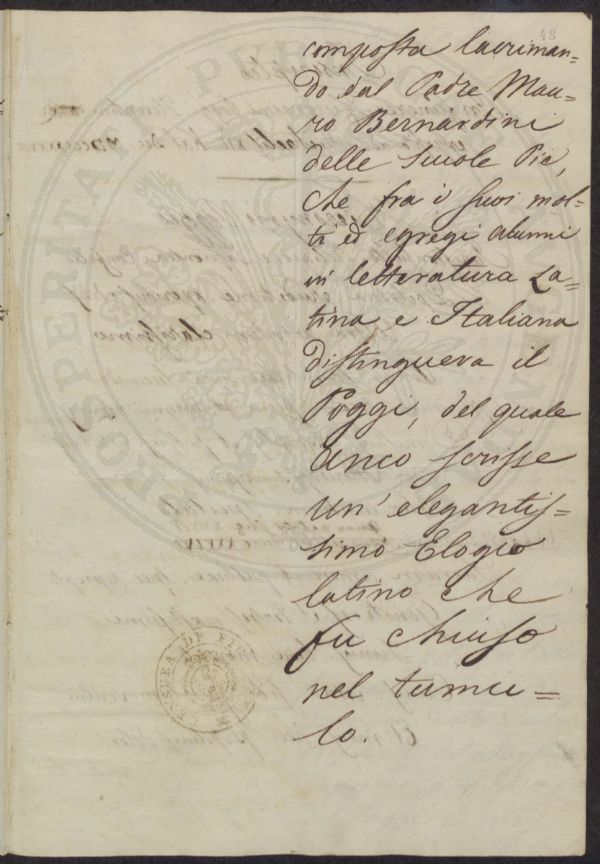 48
composta lacriman=
do dal Padre Mau=
ro Bernardini
delle Scuole Pie,
che fra i suoi mol=
ti ed egregi alunni
in letteratura La=
tina e Italiana
distingueva il
Poggi, del quale
anco scrisse
un' elegantis=
simo Elogio
latino che
fu chiuso
nel tumu=
lo.